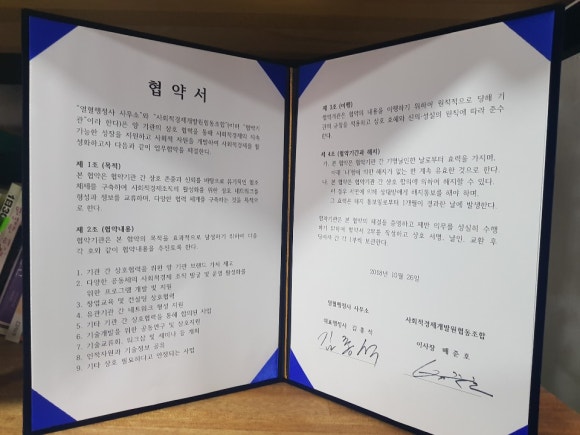 협 약 서
"열혈행정사 사무소"와 "사회적경제개발원협동조합"(이하 "협약기
관"이라 한다)은 양 기관의 상호 협력을 통해 사회적경제의 지속
가능한 성장을 지원하고 사회적 자원을 개발하며 사회적경제를 활
성화하고자 다음과 같이 업무협약을 체결한다.
제 1조 (목적)
본 협약은 협약기관 간 상호 존중과 신뢰를 바탕으로 유기적인 협조
체제를 구축하여 사회적경제조직의 활성화를 위한 상호 네트워크를
형성과 정보를 교류하며, 다양한 협력 체계를 구축하는 것을 목적으
로 한다.
제 2조 (협약내용)
협약기관은 본 협약의 목적을 효과적으로 달성하기 위하여 다음
각 호와 같이 협약내용을 추진토록 한다.
1. 기관 간 상호협력을 위한 양 기관 브랜드 가치 제고
2. 다양한 공동체와 사회적경제 조직 발굴 및 운영 활성화를
위한 프로그램 개발 및 지원
3. 창업교육 및 컨설팅 상호협력
4. 유관기관 간 네트워크 형성 지원
5. 기타 기관 간 상호협력을 통해 합의된 사업
6. 기술개발을 위한 공동연구 및 상호지원
7. 기술교류회, 워크샵 및 세미나 등 개최
8. 인적자원과 기술정보 공유
9. 기타 상호 필요하다고 인정되는 사업
제 3조 (이행)
협약기관은 본 협약의 내용을 이행하기 위하여 원칙적으로 당해 기
관의 규정을 적용하고 상호 호혜와 신의 성실의 원칙에 따라 준수
한다.
제 4조 (협약기간과 해지)
가. 본 협약은 협약기관 간 기명날인한 날로부터 효력을 가지며,
이후 나'항에 의한 해지가 없는 한 계속 유효한 것으로 한다.
나. 본 협약은 협약기관 간 상호 합의에 의하여 해지할 수 있다.
이 경우 서면에 의해 상대방에게 해지통보를 해야 하며,
그 효력은 해지 통보통보로부터 1개월이 경과한 날에 발생한다.
협약기관은 본 협약의 체결을 증명하고 제반 의무를 성실히 수행
하기 위하여 협약서 2부를 작성하고 상호 서명, 날인, 교환 후
당사자 간 각 1부씩 보관한다.
2018년 10월 26일
열혈행정사 사무소
대표행정사 김 흥 석
사회적경제개발원협동조합
이사장 배 준 호